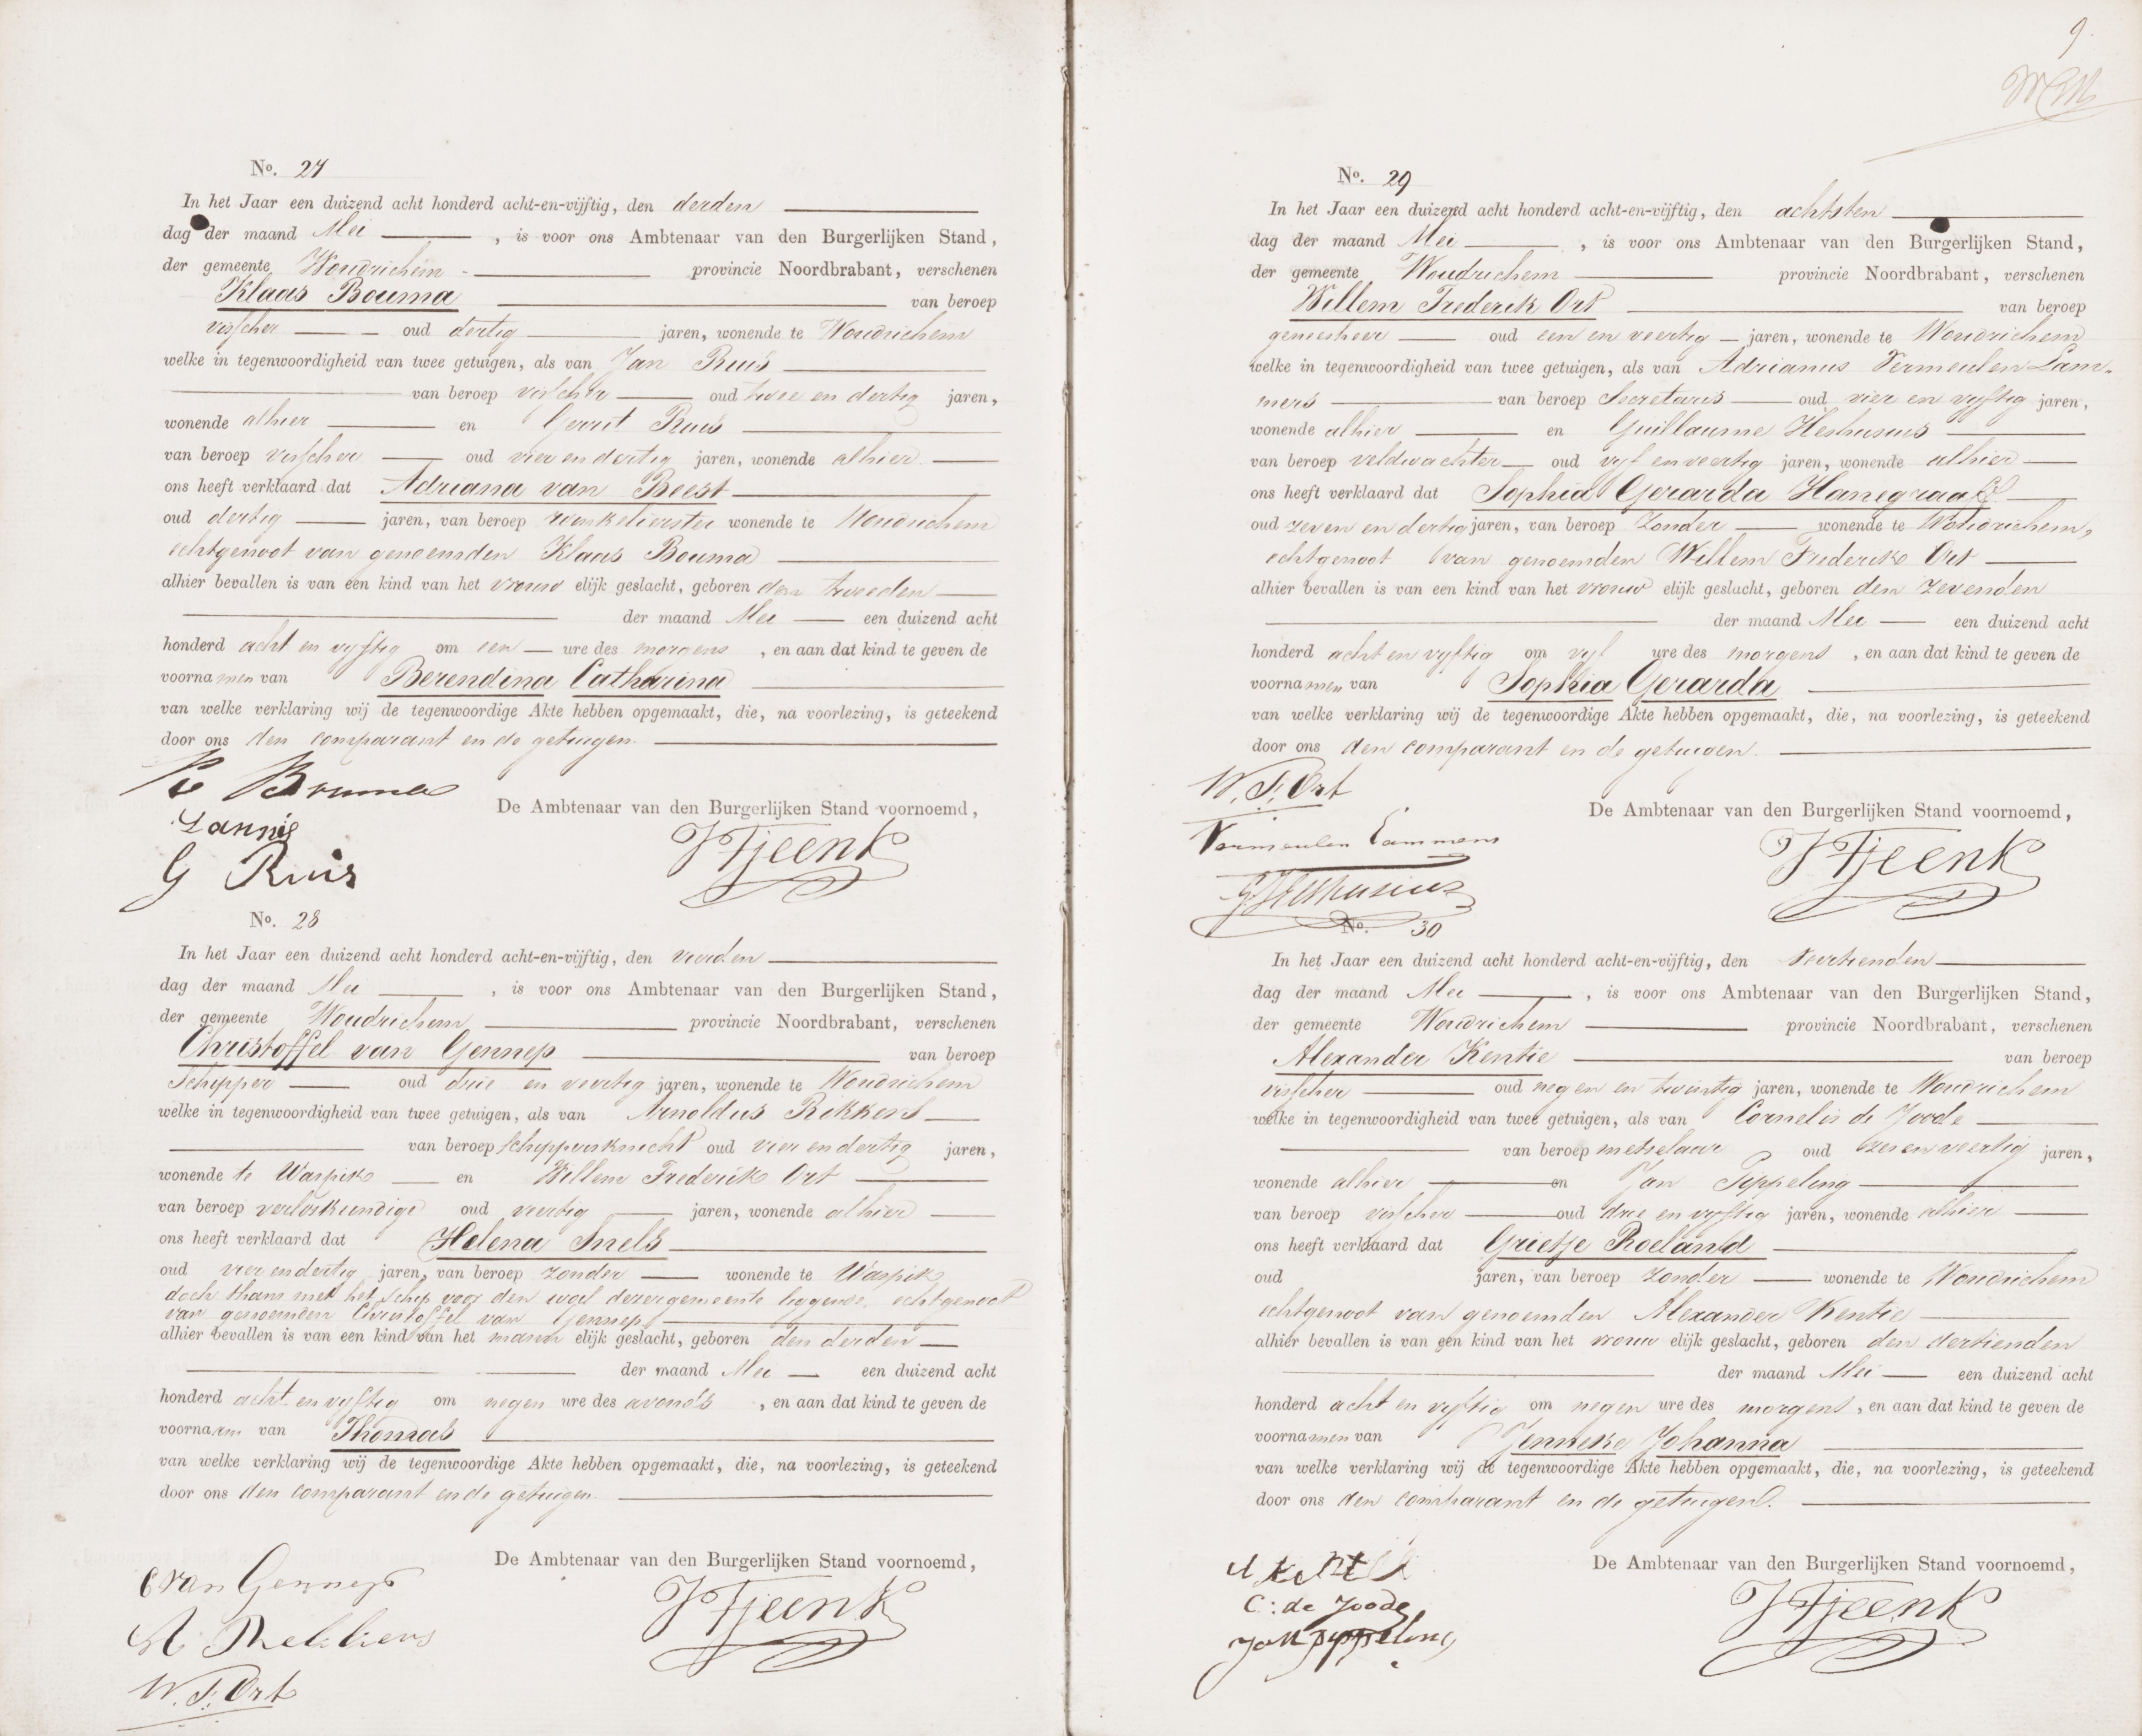 No. 27
In het Jaar een duizend acht honderd acht-en-vijftig, den derden
dag der maand Mei , is voor ons Ambtenaar van den Burgerlijken Stand,
der gemeente Woudrichem provincie Noordbrabant, verschenen
Klaas Bouma van beroep
visscher oud dertig jaren, wonende te Woudrichem
welke in tegenwoordigheid van twee getuigen, als van Jan Ruis
van beroep visscher oud twee en dertig jaren,
wonende alhier en Gerrit Ruis
van beroep visscher oud vier en dertig jaren, wonende alhier
ons heeft verklaard dat Adriana van Beest
oud dertig jaren, van beroep winkelierster wonende te Woudrichem
echtgenoot van genoemden Klaas Bouma
alhier bevallen is van een kind van het vrouw elijk geslacht, geboren den tweeden
der maand Mei een duizend acht
honderd acht en vyftig om een ure des morgens , en aan dat kind te geven de
voornamen van Berendina Catharina
van welke verklaring wij de tegenwoordige Akte hebben opgemaakt, die, na voorlezing, is geteekend
door ons den comparant en de getuigen.
Bouma
De Ambtenaar van den Burgerlijken Stand voornoemd,
G Ruis
J Tjeenk
No. 28
In het Jaar een duizend acht honderd acht-en-vijftig, den vierden
dag der maand Mei , is voor ons Ambtenaar van den Burgerlijken Stand,
der gemeente Woudrichem provincie Noordbrabant, verschenen
Christoffel van Gennep van beroep
Schipper oud drie en veertig jaren, wonende te Woudrichem
welke in tegenwoordigheid van twee getuigen, als van Arnoldus Rikkers
van beroep schippersknecht oud vier en dertig jaren,
wonende te Waspik en Willem Frederik Ort
van beroep verloskundige oud veertig jaren, wonende alhier
ons heeft verklaard dat Helena Snels
oud vier en dertig jaren, van beroep zonder wonende te Waspik
doch thans met het schip voor den wal dezer gemeente liggende, echtgenoot
van genoemden Christoffel van Gennep
alhier bevallen is van een kind van het mann elijk geslacht, geboren den derden
der maand Mei een duizend acht
honderd acht en vyftig om negen ure des avonds , en aan dat kind te geven de
voornaam van Thomas
van welke verklaring wij de tegenwoordige Akte hebben opgemaakt, die, na voorlezing, is geteekend
door ons den comparant en de getuigen.
De Ambtenaar van den Burgerlijken Stand voornoemd,
C van Gennep
A Rekkers
J Tjeenk
W. F. Ort
9.
No. 29
In het Jaar een duizend acht honderd acht-en-vijftig, den achtsten
dag der maand Mei , is voor ons Ambtenaar van den Burgerlijken Stand,
der gemeente Woudrichem provincie Noordbrabant, verschenen
Willem Frederik Ort van beroep
geneesheer oud een en veertig jaren, wonende te Woudrichem
welke in tegenwoordigheid van twee getuigen, als van Adrianus Vermeulen Lam-
mers van beroep Secretaris oud vier en vyftig jaren,
wonende alhier en Guillaume Heshusius
van beroep veldwachter oud vyf en veertig jaren, wonende alhier
ons heeft verklaard dat Sophia Gerarda Hanegraaff
oud zeven en dertig jaren, van beroep zonder wonende te Woudrichem,
echtgenoot van genoemden Willem Frederik Ort
alhier bevallen is van een kind van het vrouw elijk geslacht, geboren den zevenden
der maand Mei een duizend acht
honderd acht en vyftig om vyf ure des morgens , en aan dat kind te geven de
voornamen van Sophia Gerarda
van welke verklaring wij de tegenwoordige Akte hebben opgemaakt, die, na voorlezing, is geteekend
door ons den comparant en de getuigen.
W. F. Ort
De Ambtenaar van den Burgerlijken Stand voornoemd,
Vermeulen Lammers
J Tjeenk
G Heshusius
No. 30
In het Jaar een duizend acht honderd acht-en-vijftig, den veertienden
dag der maand Mei , is voor ons Ambtenaar van den Burgerlijken Stand,
der gemeente Woudrichem provincie Noordbrabant, verschenen
Alexander Kentie van beroep
visscher oud negen en twintig jaren, wonende te Woudrichem
welke in tegenwoordigheid van twee getuigen, als van Cornelis de Joode
van beroep metselaar oud zes en veertig jaren,
wonende alhier en Jan Pippeling
van beroep visscher oud drie en vyftig jaren, wonende alhier
ons heeft verklaard dat Grietje Roeland
oud jaren, van beroep zonder wonende te Woudrichem
echtgenoot van genoemden Alexander Kentie
alhier bevallen is van een kind van het vrouw elijk geslacht, geboren den dertienden
der maand Mei een duizend acht
honderd acht en vyftig om negen ure des morgens , en aan dat kind te geven de
voornamen van Jenneke Johanna
van welke verklaring wij de tegenwoordige Akte hebben opgemaakt, die, na voorlezing, is geteekend
door ons den comparant en de getuigen.
A Kentie
De Ambtenaar van den Burgerlijken Stand voornoemd,
C: de Joode
Jan pippeling
J Tjeenk